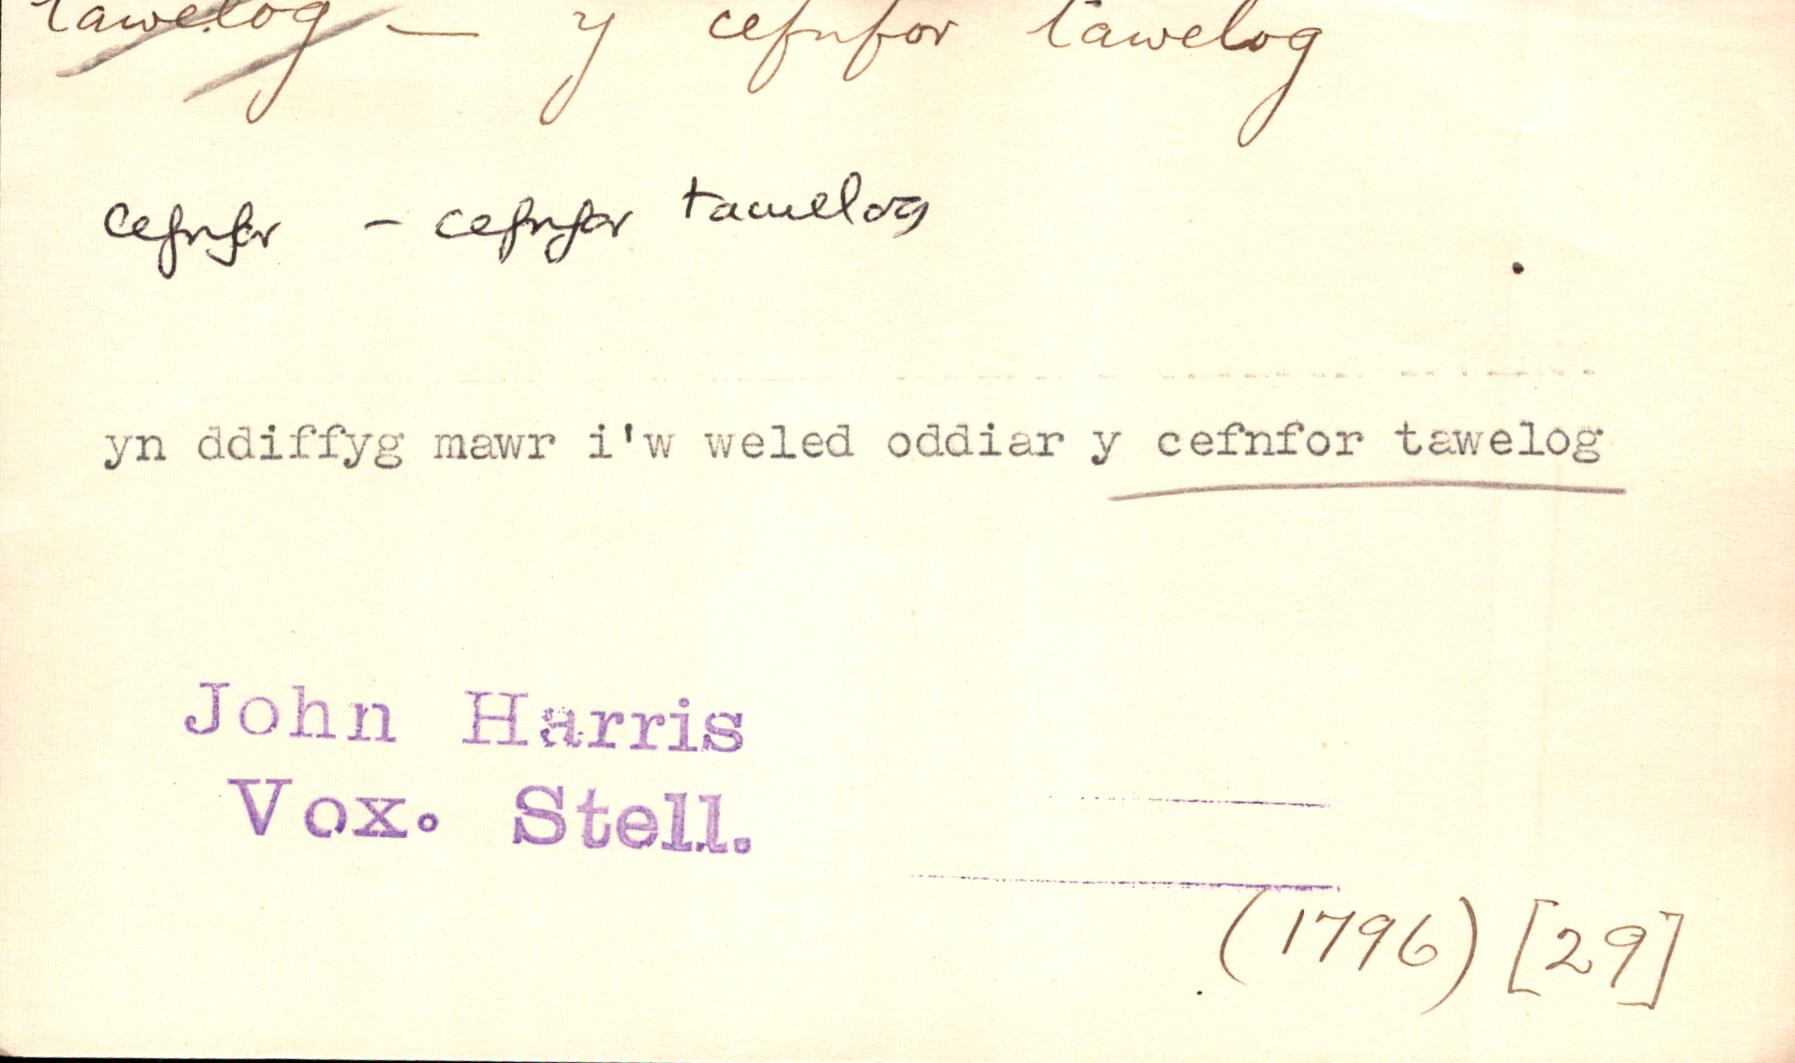 tawelog — y cefnfor tawelog
cefnfor - cefnfor tawelog
yn ddiffyg mawr i'w weled oddiar y cefnfor tawelog
John Harris
Vox. Stell.
(1796) [29]